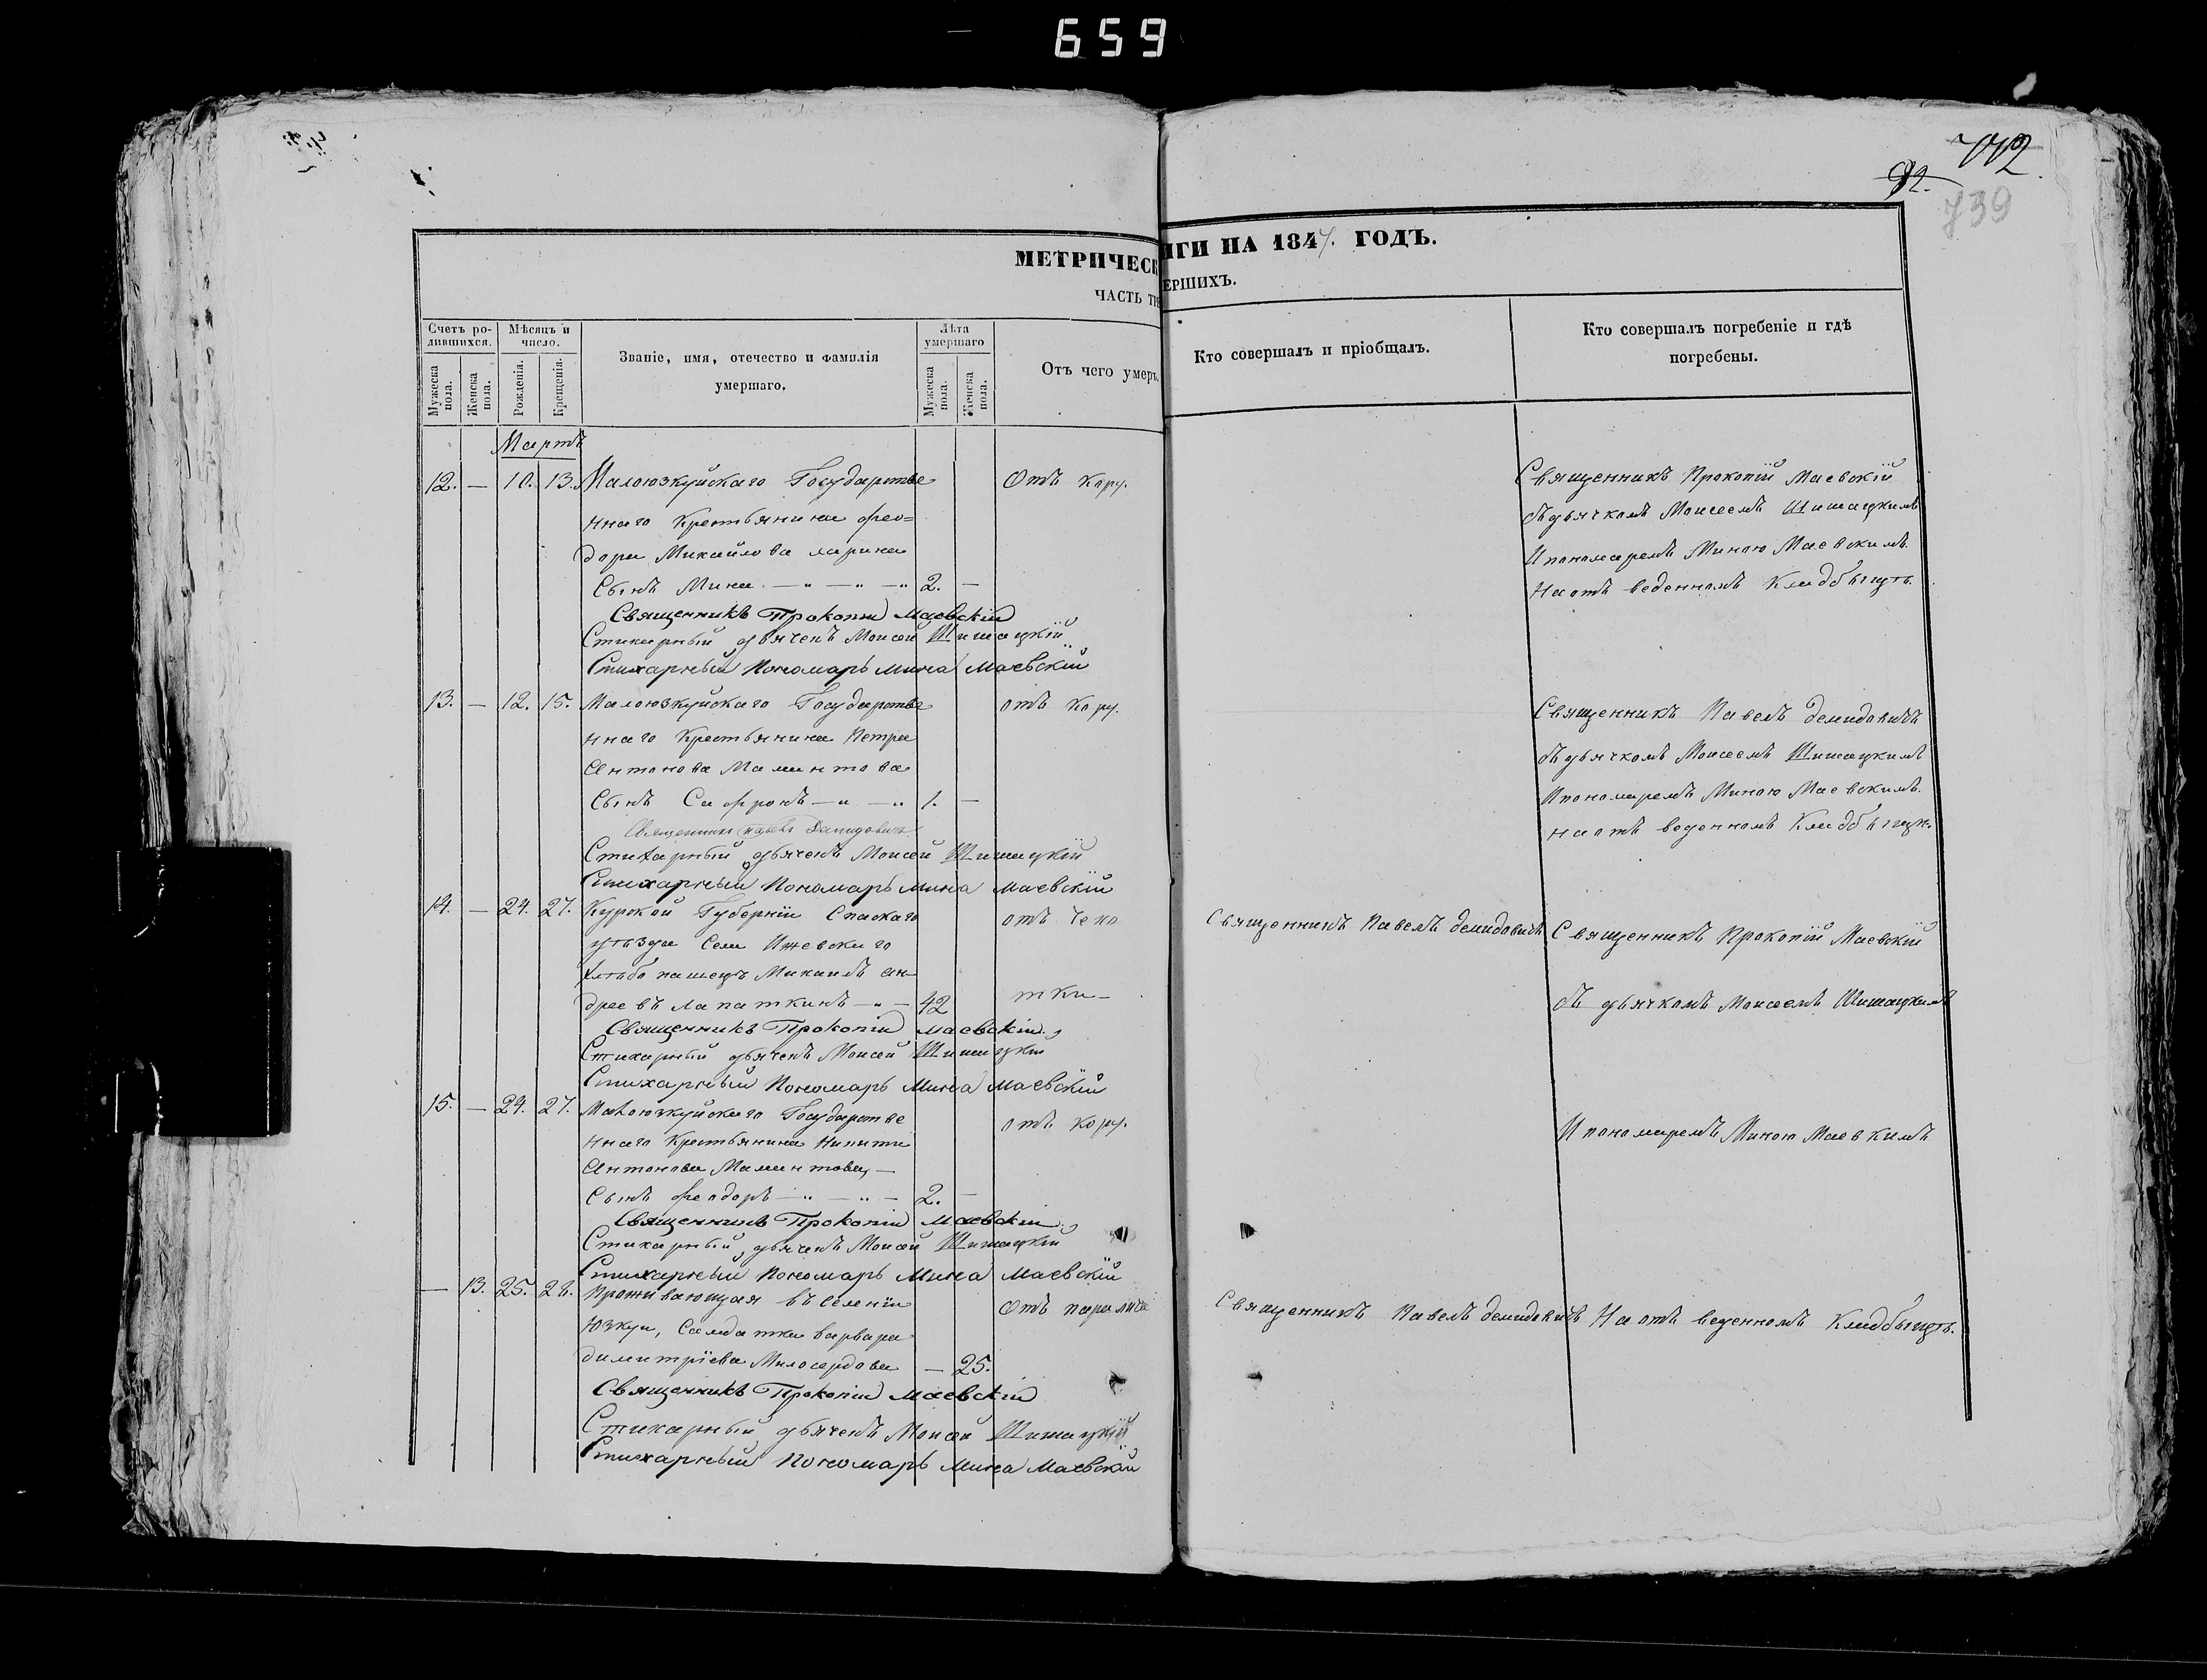 659
742
92.
739
МЕТРИЧЕСК
ИГИ НА 1847. ГОДЪ.
ЧАСТЬ ТР
ЕРШИХЪ.
Счетъ ро-
дившихся.
Мужеска пола.
Женска пола.
Мѣсяцъ и
число.
Рожденія.
Крещенія.
Званіе, имя, отечество и фамилія
умершаго.
Лѣта
умершаго
Мужеска пола.
Женска пола.
Отъ чего умеръ.
Кто совершалъ и пріобщалъ.
Кто совершалъ погребеніе и гдѣ
погребены.
Мартъ
12. — 10. 13. Малоюзкуйскаго Государстве Отъ кору.
ннаго Крестьянина Фео=
дора Михайлова Ларина
Сынъ Мина — " — " — " 2. —
Священникъ Прокопій Маевскій
Стихарный дьячекъ Моисей Шишацкій
Стихарный Пономарь Мина Маевскій
Священникъ Прокопій Маевскій
съ дьячкомъ Моисеемъ Шишацкимъ
И пономаремъ Миною Маевскимъ.
На отъ веденномъ Кладбищѣ.
13. — 12. 15. Малоюзкуйскаго Государстве отъ кору.
ннаго Крестьянина Петра
Антонова Мамонтова
Сынъ Софронъ — " — " 1. —
Священникъ Павелъ Демидовичъ
Стихарный дьячекъ Моисей Шишацкій
Стихарный Пономарь Мина Маевскій
Священникъ Павелъ Демидовичъ
съ дьячкомъ Моисеемъ Шишацкимъ
И пономаремъ Миною Маевскимъ.
на отъ веденномъ Кладбищѣ.
14. — 24. 27. Курской Губерніи Спаскаго отъ чехо
уѣзда Села Ижевскаго
хлѣбопашецъ Михаилъ Ан
дреевъ Лапаткинъ — " — 42 тки —
Священникъ Прокопій Маевскій
Стихарный дьячекъ Моисей Шишацкій
Стихарный Пономарь Мина Маевскій
Священникъ Павелъ Демидовичъ
Священникъ Прокопій Маевскій
съ дьячкомъ Моисеемъ Шишацкимъ
15. — 24. 27. Малоюзкуйскаго Государстве отъ кору.
ннаго Крестьянина Никиты
Антонова Мамонтова, —
Сынъ Феодоръ — " — " — 2. —
Священникъ Прокопій Маевскій
Стихарный дьячекъ Моисей Шишацкій
Стихарный Пономарь Мина Маевскій
И пономаремъ Миною Маевкимъ
— 13. 25. 28. Проживающая въ селеніи Отъ паралича
Юзкуи, Салдатка варвара
димитріева Милосердова — 25.
Священникъ Прокопій Маевскій
Стихарный дьячекъ Моисей Шишацкій
Стихарный Пономарь Мина Маевскій
Священникъ Павелъ Демидовичъ
На отъ веденномъ Кладбищѣ.